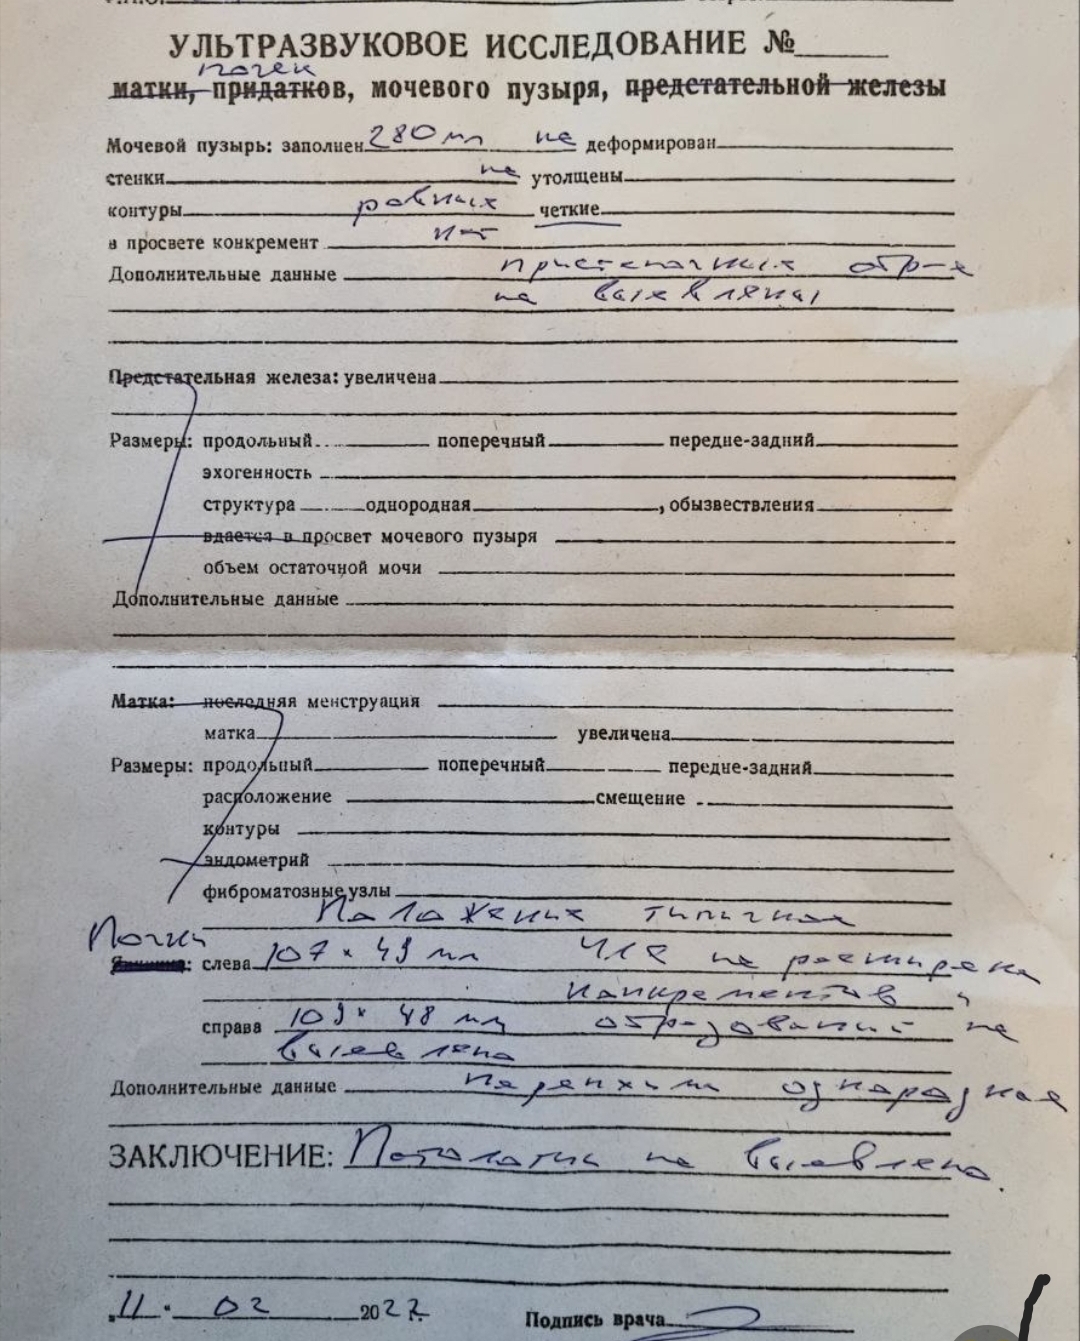 УЛЬТРАЗВУКОВОЕ ИССЛЕДОВАНИЕ №
почек
матки, придатков, мочевого пузыря, предстательной железы
Мочевой пузырь: заполнен 280 мл не деформирован
стенки не утолщены
контуры ровные четкие
в просвете конкремент нет
Дополнительные данные пристеночных обр-я
не выявлены
Предстательная железа: увеличена
Размеры: продольный поперечный передне-задний
эхогенность
структура однородная, обызвествления
вдается в просвет мочевого пузыря
объем остаточной мочи
Дополнительные данные
Матка: последняя менструация
матка увеличена
Размеры: продольный поперечный передне-задний
расположение смещение
контуры
эндометрий
фиброматозные узлы
Положение типичное
Почки
слева 107 x 49 мм ЧЛС не расширена
конкрементов и
справа 109 x 48 мм образований не
выявлено
Дополнительные данные паренхима однородная
ЗАКЛЮЧЕНИЕ: Патологии не выявлено.
11. 02 2022 Подпись врача